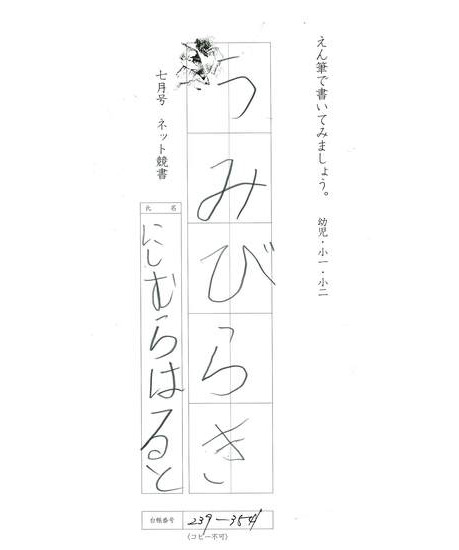 えん筆で書いてみましょう。 幼児・小一・小二
うみびらき
七月号 ネット競書
氏名
にしむらはると
台帳番号 239-3541
(コピー不可)